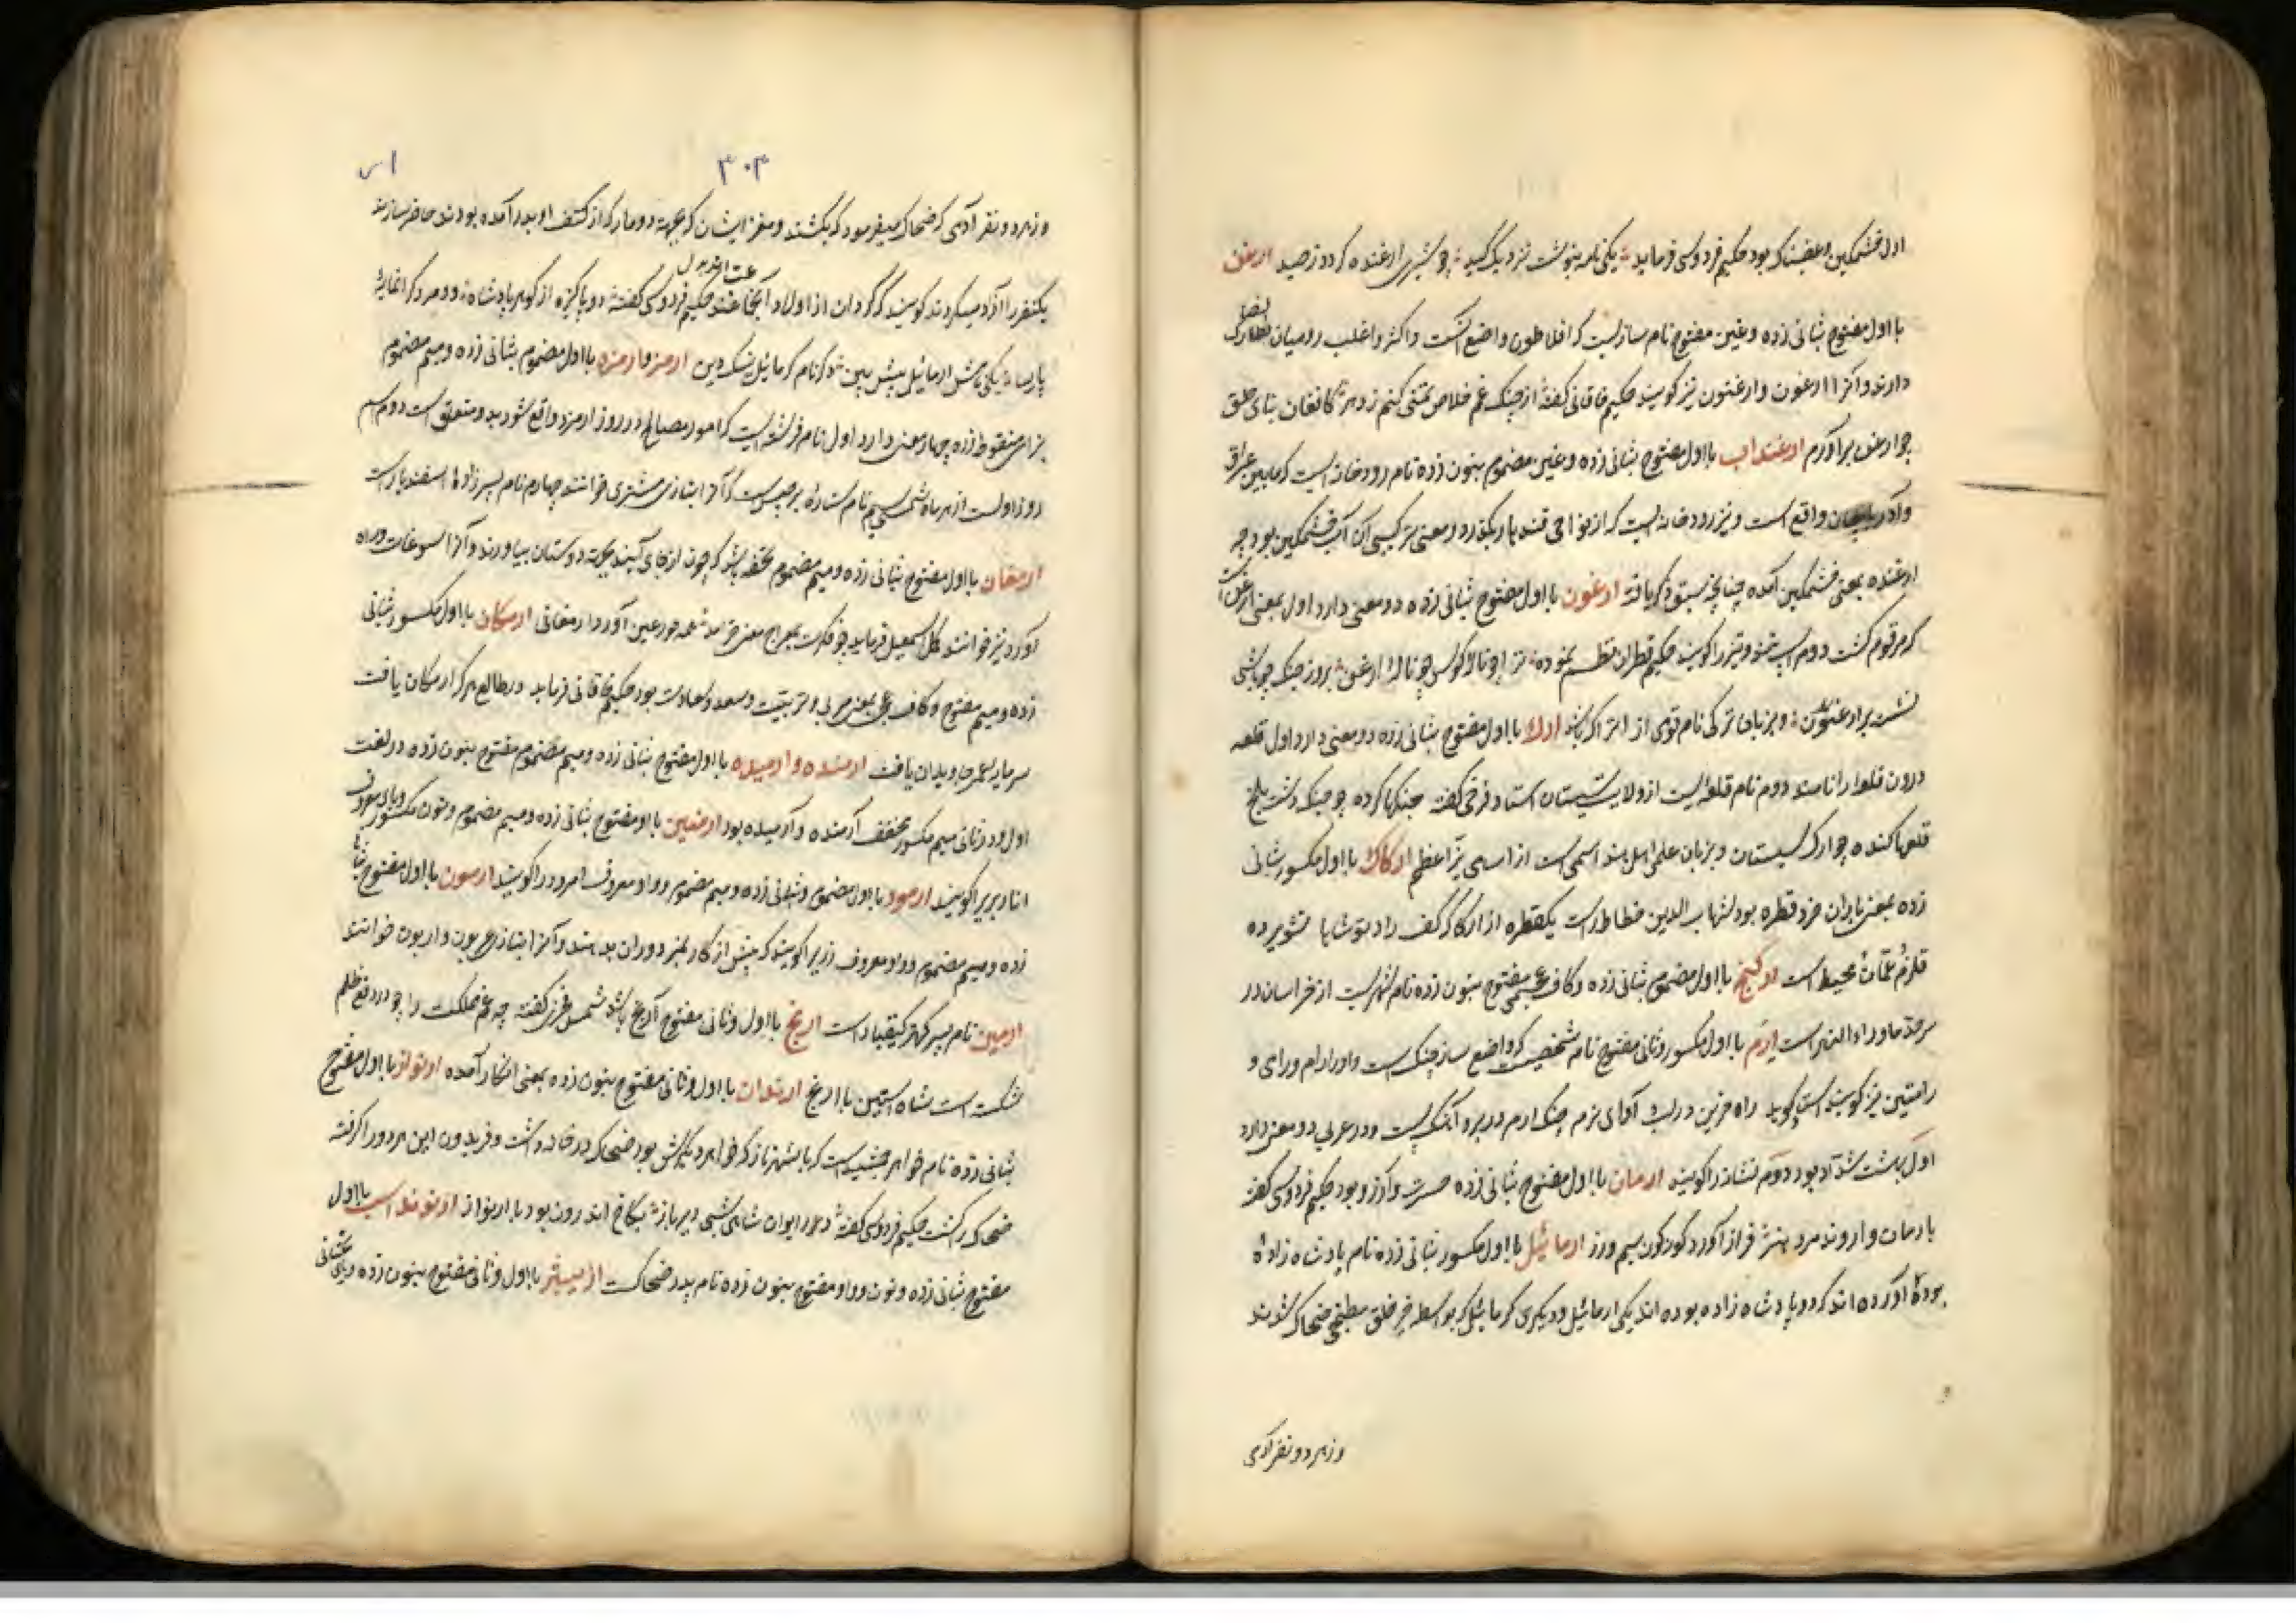 اول خشمگین و غضبناک بود حکیم فردوسی فرماید یکی نامه بنوشت نزدیک گیو چو شیری ارغنده گردد ز صید ارغن
با اول مفتوح بثانی زده و غین مفتوح نام سازیست که افلاطون واضع آنست و اکثر و اغلب رومیان نصارا
دارند و آنرا ارغون و ارغنون نیز گویند حکیم خاقانی گفته از چنگ غم خلاص تمنی کنم ز دهر کافغان بنای حلق
چو ارغن برآورم ارغنداب با اول مفتوح بثانی زده و غین مضموم بنون زده نام رودخانه ایست که مابین عراق
و آذربایجان واقع است و نیز رودخانه ایست که از نواحی قندهار بگذرد و معنی ترکیبی آن آب خشمگین بود چه
ارغنده بمعنی خشمگین آمده چنانچه سبق ذکر یافته ارغون با اول مفتوح بثانی زده دو معنی دارد اول بمعنی ارغن است
که مرقوم گشت دوم اسپ تند و تیز را گویند حکیم قطران نظم نموده نزا چو نالۀ کوس چو نالۀ ارغن بروز جنگ چو باشی
نشسته بر ارغون و بزبان ترکی نام قومی از اتراک باشد ارک با اول مفتوح بثانی زده دو معنی دارد اول قلعه
درون قلعه را نامند دوم نام قلعه ایست از ولایت سیستان استاد فرخی گفته جنگها کرده چو جنگ دشت بلخ
قلعها کنده چو ارک سیستان و بزبان علمی اهل هند اسمی است از اسامی نیّر اعظم ارکاک با اول مکسور بثانی
زده بمعنی باران خرد قطره بود شهاب الدین خطاط راست یکقطره از ارکاک کف راد تو شاها تشویر ده
قلزم عمان محیط است ارکنج با اول مضموم بثانی زده و کاف عجمی مفتوح بنون زده نام شهریست از خراسان در
سرحد ماوراءالنهر است ارم با اول مکسور و ثانی مفتوح نام شخصیست که واضع ساز چنگ است و او را رام و رامی و
رامتین نیز گویند استاد گوید راه حزین در آوای نرم چنگ ارم در برد آنگ است و در عربی دو معنی دارد
اول بهشت شدّاد بود دوم نشانه را گویند ارمان با اول مفتوح بثانی زده حسرت و آرزو بود حکیم فردوسی گفته
بارمان و اروند مرد هنر فراز آورد گونه گون سیم و زر ارمائیل با اول مکسور بثانی زده نام پادشاه زادۀ
بوده آورده اند که دو پادشاه زاده بوده اند یکی ارمائیل و دیگری کرمائیل که بواسطه خیر خلق مطبخی ضحاک شدند
و زهر دو نفر آدمی
۳۰۴
و زهر دو نفر آدمی که ضحاک میفرمود که بکشند و مغز ایشان که بجهة دو مار که از کتف او بدر آمده بودند حاضر سازند
یکنفر را آزاد میکردند گویند کردان از اولاد آنجماعتند حکیم فردوسی گفته دو پاکیزه از گوهر پادشاه دو مرد گرانمایه
پارسا یکی نامش ارمائیل پیش بین دگر نام کرمائیل نیک دین ارمز و ارمزد با اول مضموم بثانی زده و میم مضموم
بزای منقوط زده چهار معنی دارد اول نام فرشته ایست که امور مصالح در روز ارمزد واقع شود بدو متعلق است دوم اسم
روز اولست از هر ماه شمسی سیم نام ستارۀ برجیس است که آنرا بتازی مشتری خوانند چهارم نام پسر زادۀ اسفندیارست
ارمغان با اول مفتوح بثانی زده و میم مضموم تحفه باشد که چون از جای آیند بجهة دوستان بیاورند و آنرا سوغات و راه
آورد نیز خوانند کمال اسمعیل فرماید چو فکرت بمعراج معنی خرامد همه حور عین آورد ارمغانی ارمکان با اول مکسور بثانی
زده و میم مفتوح و کاف بمعنی مربی و تربیت و سعد و سعادت بود حکیم خاقانی فرماید در طالع هر که ارمکان یافت
سرمایه عمر جاویدان یافت ارمنده و ارمیده با اول مفتوح بثانی زده و میم مضموم مفتوح بنون زده در لغت
اول و در ثانی میم مکسور مخفف آرمنده و آرمیده بود ارمنین با اول مفتوح بثانی زده و میم مضموم و نون مکسور و یای معروف
انار بری را گویند ارمود با اول مضموم و بثانی زده و میم مضموم و واو معروف امرود را گویند ارمون با اول مفتوح بثانی
زده و میم مضموم و واو معروف زری را گویند که پیش از کار بمزدوران بدهند و آنرا بتازی عربون و اربون خوانند
ارمین نام پسر کهتر کیقباد است ارنج با اول و ثانی مفتوح آرنج باشد شمس فخری گفته چه غم مملکت را چو در دفع ظلم
شکسته است شاه آستین با ارنج ارندان با اول و ثانی مفتوح بنون زده بمعنی انکار آمده ارنواز با اول مفتوح
بثانی زده نام خواهر جمشید است که با شهرناز که خواهر دیگرش بود ضحاک در خانه داشت و فریدون این هر دو را گرفته
ضحاک را کشت حکیم فردوسی گفته در ایوان شاهی شبی دیر باز بکاخ اندرون بود با ارنواز ارنوند اسپ با اول
مفتوح بثانی زده و نون و واو مفتوح بنون زده نام پدر ضحاکست ارنیشر با اول و ثانی مفتوح بنون زده و یای تحتانی